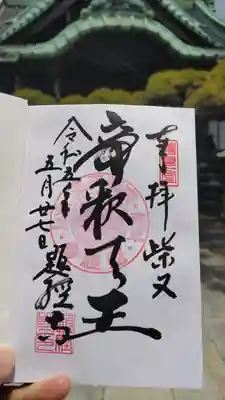 奉拝 柴又
帝釈天王
令和五年
五月廿七日 題經寺